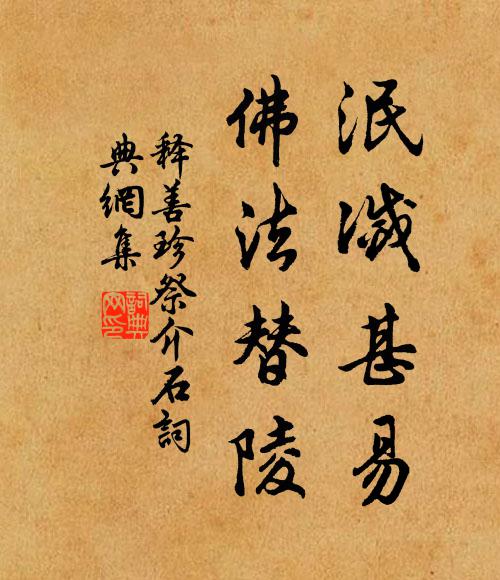 泯滅甚易
佛法替陵
释善珍祭介石詞
典網集
詞典網印